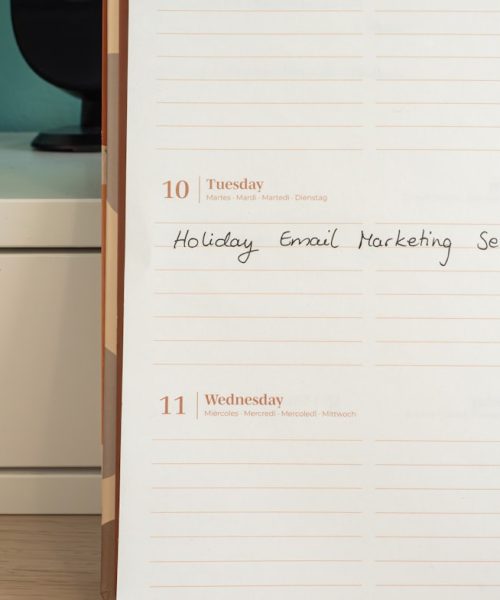 10 Tuesday
Martes · Mardi · Martedì · Dienstag
Holiday Email Marketing Se
11 Wednesday
Miércoles · Mercredi · Mercoledì · Mittwoch